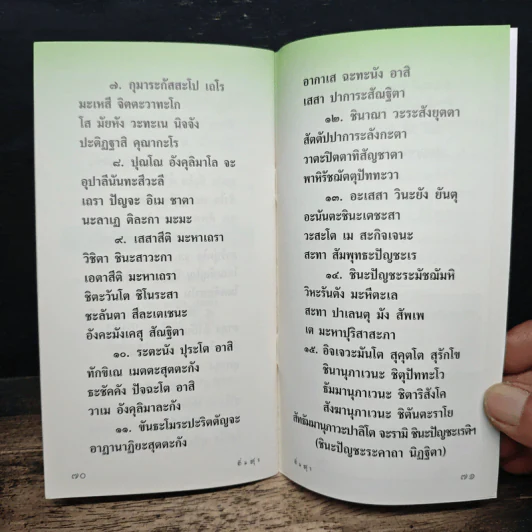 ๗. กุมาระกัสสะโป เถโร
มะเหสี จิตตะวาทะโก
โส มัยหัง วะทะเน นิจจัง
ปะติฏฐาสิ คุณากะโร
๘. ปุณโณ อังคุลิมาโล จะ
อุปาลีนันทะสีวะลี
เถรา ปัญจะ อิเม ชาตา
นะลาเฏ ติละกา มะมะ
๙. เสสาสีติ มะหาเถรา
วิชิตา ชินะสาวะกา
เอตาสีติ มะหาเถรา
ชิตะวันโต ชิโนระสา
ชะลันตา สีละเตเชนะ
อังคะมังเคสุ สัณฐิตา
๑๐. ระตะนัง ปุระโต อาสิ
ทักขิเณ เมตตะสุตตะกัง
ธะชัคคัง ปัจฉะโต อาสิ
วาเม อังคุลิมาละกัง
๑๑. ขันธะโมระปะริตตัญจะ
อาฏานาฏิยะสุตตะกัง
๗๐
อากาเส ฉะทะนัง อาสิ
เสสา ปาการะสัณฐิตา
๑๒. ชินาณา วะระสังยุตตา
สัตตัปปาการะลังกะตา
วาตะปิตตาทิสัญชาตา
พาหิรัชฌัตตุปัททะวา
๑๓. อะเสสา วินะยัง ยันตุ
อะนันตะชินะเตชะสา
วะสะโต เม สะกิจเจนะ
สะทา สัมพุทธะปัญชะเร
๑๔. ชินะปัญชะระมัชฌัมหิ
วิหะรันตัง มะหีตะเล
สะทา ปาเลนตุ มัง สัพเพ
เต มะหาปุริสาสะภา
๑๕. อิจเจวะมันโต สุคุตโต สุรักโข
ชินานุภาเวนะ ชิตุปัททะโว
ธัมมานุภาเวนะ ชิตาริสังโค
สังฆานุภาเวนะ ชิตันตะราโย
สัทธัมมานุภาวะปาลิโต จะรามิ ชินะปัญชะเรติฯ
(ชินะปัญชะระคาถา นิฏฐิตา)
๗๑